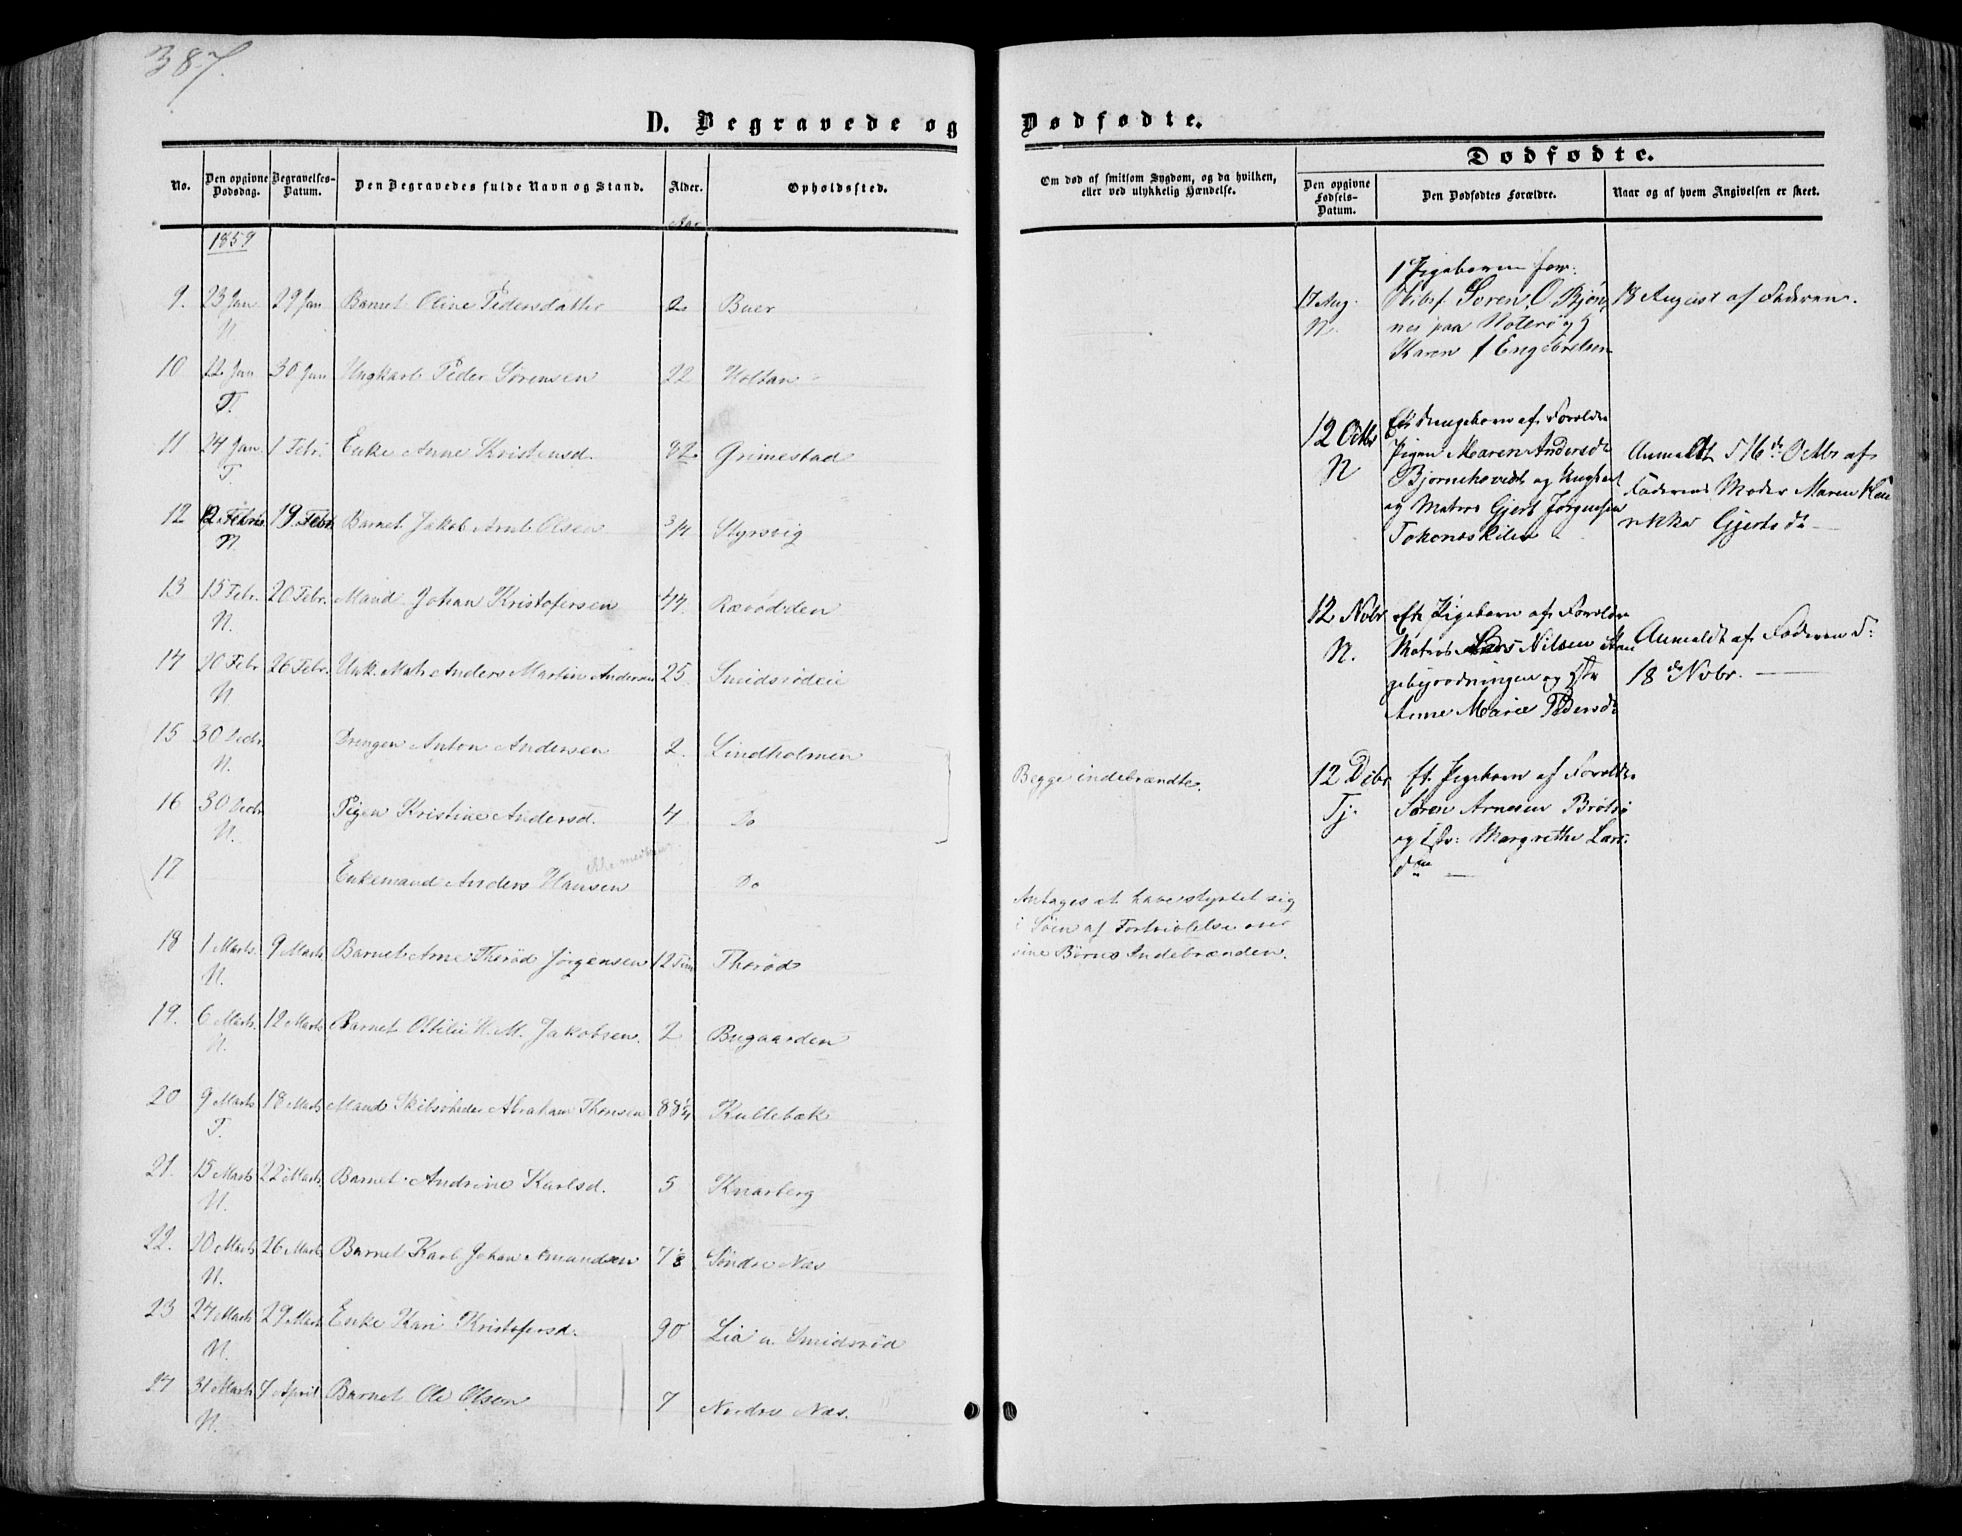 387.
D. Begravede og
Dødfødte.
No.
Den opgivne Dødsdag.
Begravelses-Datum.
Den Begravedes fulde Navn og Stand.
Alder.
Opholdssted.
Om død af smitsom Sygdom, og da hvilken, eller ved ulykkelig Hændelse.
Dødfødte.
Den opgivne Fødsels-Datum.
Den Dødfødtes Forældre.
Naar og af hvem Angivelsen er skeet.
Aar
1859
9. 23 Jan N. 29 Jan Barnet Oline Pedersdatter 2 Buer
10 22 Jan T. 30 Jan Ungkarl Peder Sørensen 22 Holtan
11 24 Jan T. 1 Febr. Enke Anne Kristensd. 82 Grimestad
12 N. 19 Febr. Barnet Jakob Olsen 3/4 Styrsvig
13 15 Febr. N. 20 Febr. Mand Johan Kristofersen 44. Rævødden
14 20 Febr N 26 Febr. Anders Martin Andersen 25. Smidsrødeie
15 30 Decbr. N. Drengen Anton Andersen 2. Lindholmen
16 30 Decbr N. Pigen Kristine Andersd. 4 Do
Begge indebrændte.
17 Enkemand Anders Hansen Do
Antages at have styrtet sig
i Søen af Fortvivlelse over
sine Børns Indebrænden.
18 1 Marts. N. 9 Marts Barnet Arne Therød Jørgensen 12 Therød
19. 6 Marts. N. 12 Marts Barnet Ottilie H. M. Jakobsen. 2 Bugaarden
20 9 Marts T. 18 Marts Mand Abraham Thonsen 88 1/4 Kullebæk
21. 15 Marts N. 22 Marts. Barnet Andrine Karlsd. 5 Knarberg
22. 20 Marts N. 26 Marts Barnet Karl Johan Amundsen Søndre Næs
23 27 Marts N. 29 Marts Enke Kari Kristofersd. 90 Lia u. Smidsrød
24 31 Marts N. 7 April Barnet Ole Olsen 7 Nordre Næs.
17 Aug. N.
1 Pigebarn for:
Skibsf. Søren O. Bjøn-
nes paa Noterø og
Karen f Engebretsen
18 August af Faderen.
12 Octbr N
Et Drengebarn af Foreldre
Pigen Maren Andersd
og Ungkarl
og Matros Gjert Jørgensen
Anmeldt 16de Octbr af
Faderens Moder Maren
Gjertsd
12 Nvbr N.
et Pigebarn af Foreldre
Matros Lars Nilsen
og
Anne Marie Pedersd
Anmeldt af Faderen d:
18 de Nvbr.
12 Dcbr Tj.
Et Pigebarn af Foreldre
Søren Arnesen Brøtsø
og Margrethe Lars-